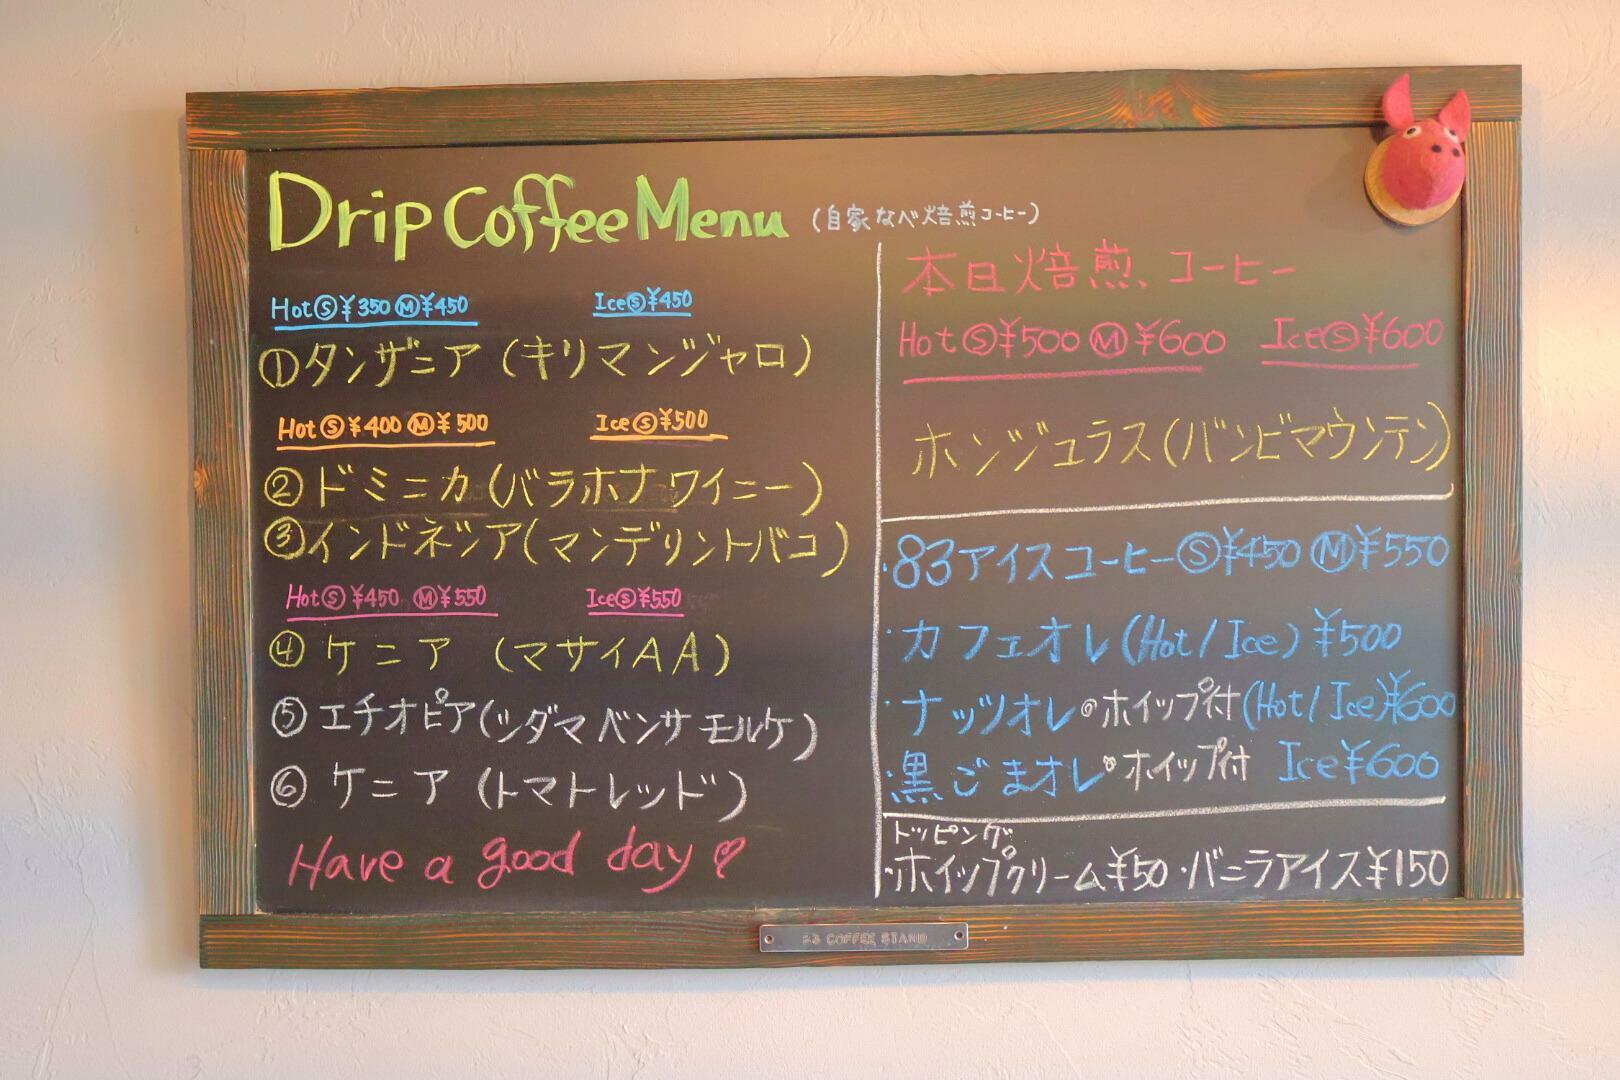 Drip Coffee Menu (自家なべ焙煎コーヒー)
Hot Ⓢ¥350 Ⓜ¥450 Ice Ⓢ¥450
①タンザニア (キリマンジャロ)
Hot Ⓢ¥400 Ⓜ¥500 Ice Ⓢ¥500
②ドミニカ (バラホナ ワイニー)
③インドネシア (マンデリントバコ)
Hot Ⓢ¥450 Ⓜ¥550 Ice Ⓢ¥550
④ケニア (マサイAA)
⑤エチオピア (シダマ ベンサ モルケ)
⑥ケニア (トマトレッド)
Have a good day
本日焙煎コーヒー
Hot Ⓢ¥500 Ⓜ¥600 Ice Ⓢ¥600
ホンジュラス (バンビマウンテン)
・83アイスコーヒー Ⓢ¥450 Ⓜ¥550
・カフェオレ (Hot/Ice) ¥500
・ナッツオレ ホイップ付 (Hot/Ice) ¥600
・黒ごまオレ ホイップ付 Ice ¥600
トッピング
・ホイップクリーム ¥50 ・バニラアイス ¥150
83 COFFEE STAND